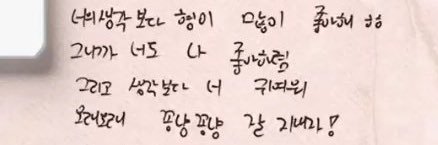 너의 생각보다 형이 많이 좋아해 ㅎㅎ
그니까 너도 나 좋아하렴
그리고 생각보다 너 귀여워
오래오래 퐁냥퐁냥 잘 지내자!